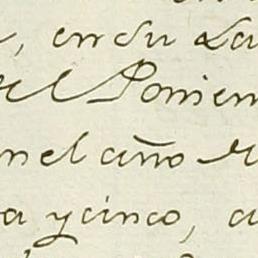 , en su La
el Ponien
n el año
a y cinco, a